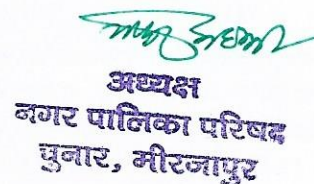 अध्यक्ष
नगर पालिका परिषद
चुनार, मीरजापुर